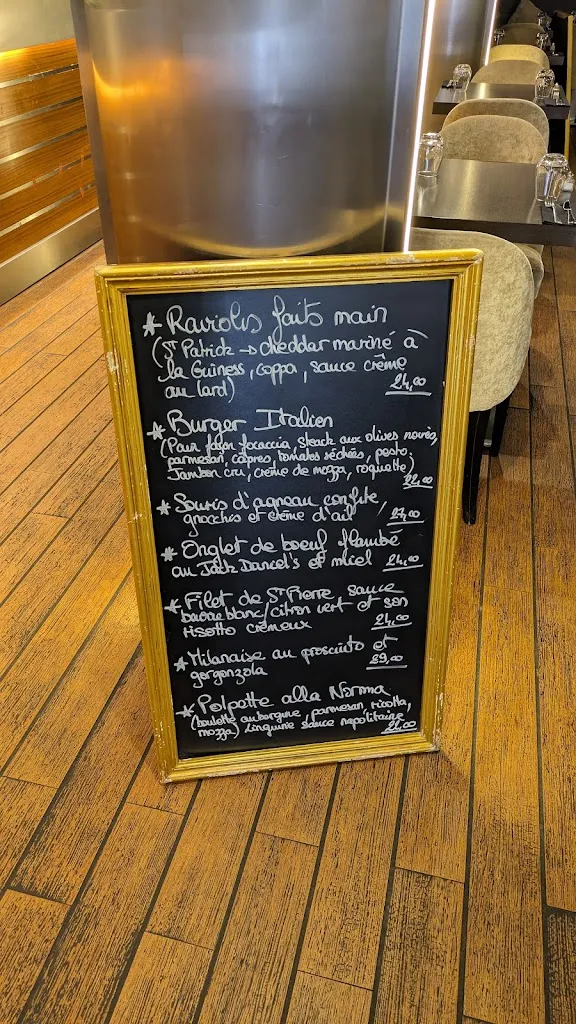 * Raviolis faits main
(St Patrick → cheddar mariné à
la Guiness, coppa, sauce crème
au lard) 24,00
* Burger Italien
(Pain façon focaccia, steack aux olives noires,
parmesan, câpres, tomates séchées, pesto,
Jambon cru, crème de mozza, roquette)
22,00
* Souris d'agneau confite,
gnocchis et crème d'ail 27,00
* Onglet de boeuf flambé
au Jack Daniel's et miel 24,00
* Filet de St Pierre sauce
beurre blanc/citron vert et son
risotto crémeux 24,00
* Milanaise au prosciutto et
gorgonzola 29,00
* Polpette alla Norma
(boulette aubergine, parmesan, ricotta,
mozza) Linguine sauce napolitaine
22,00